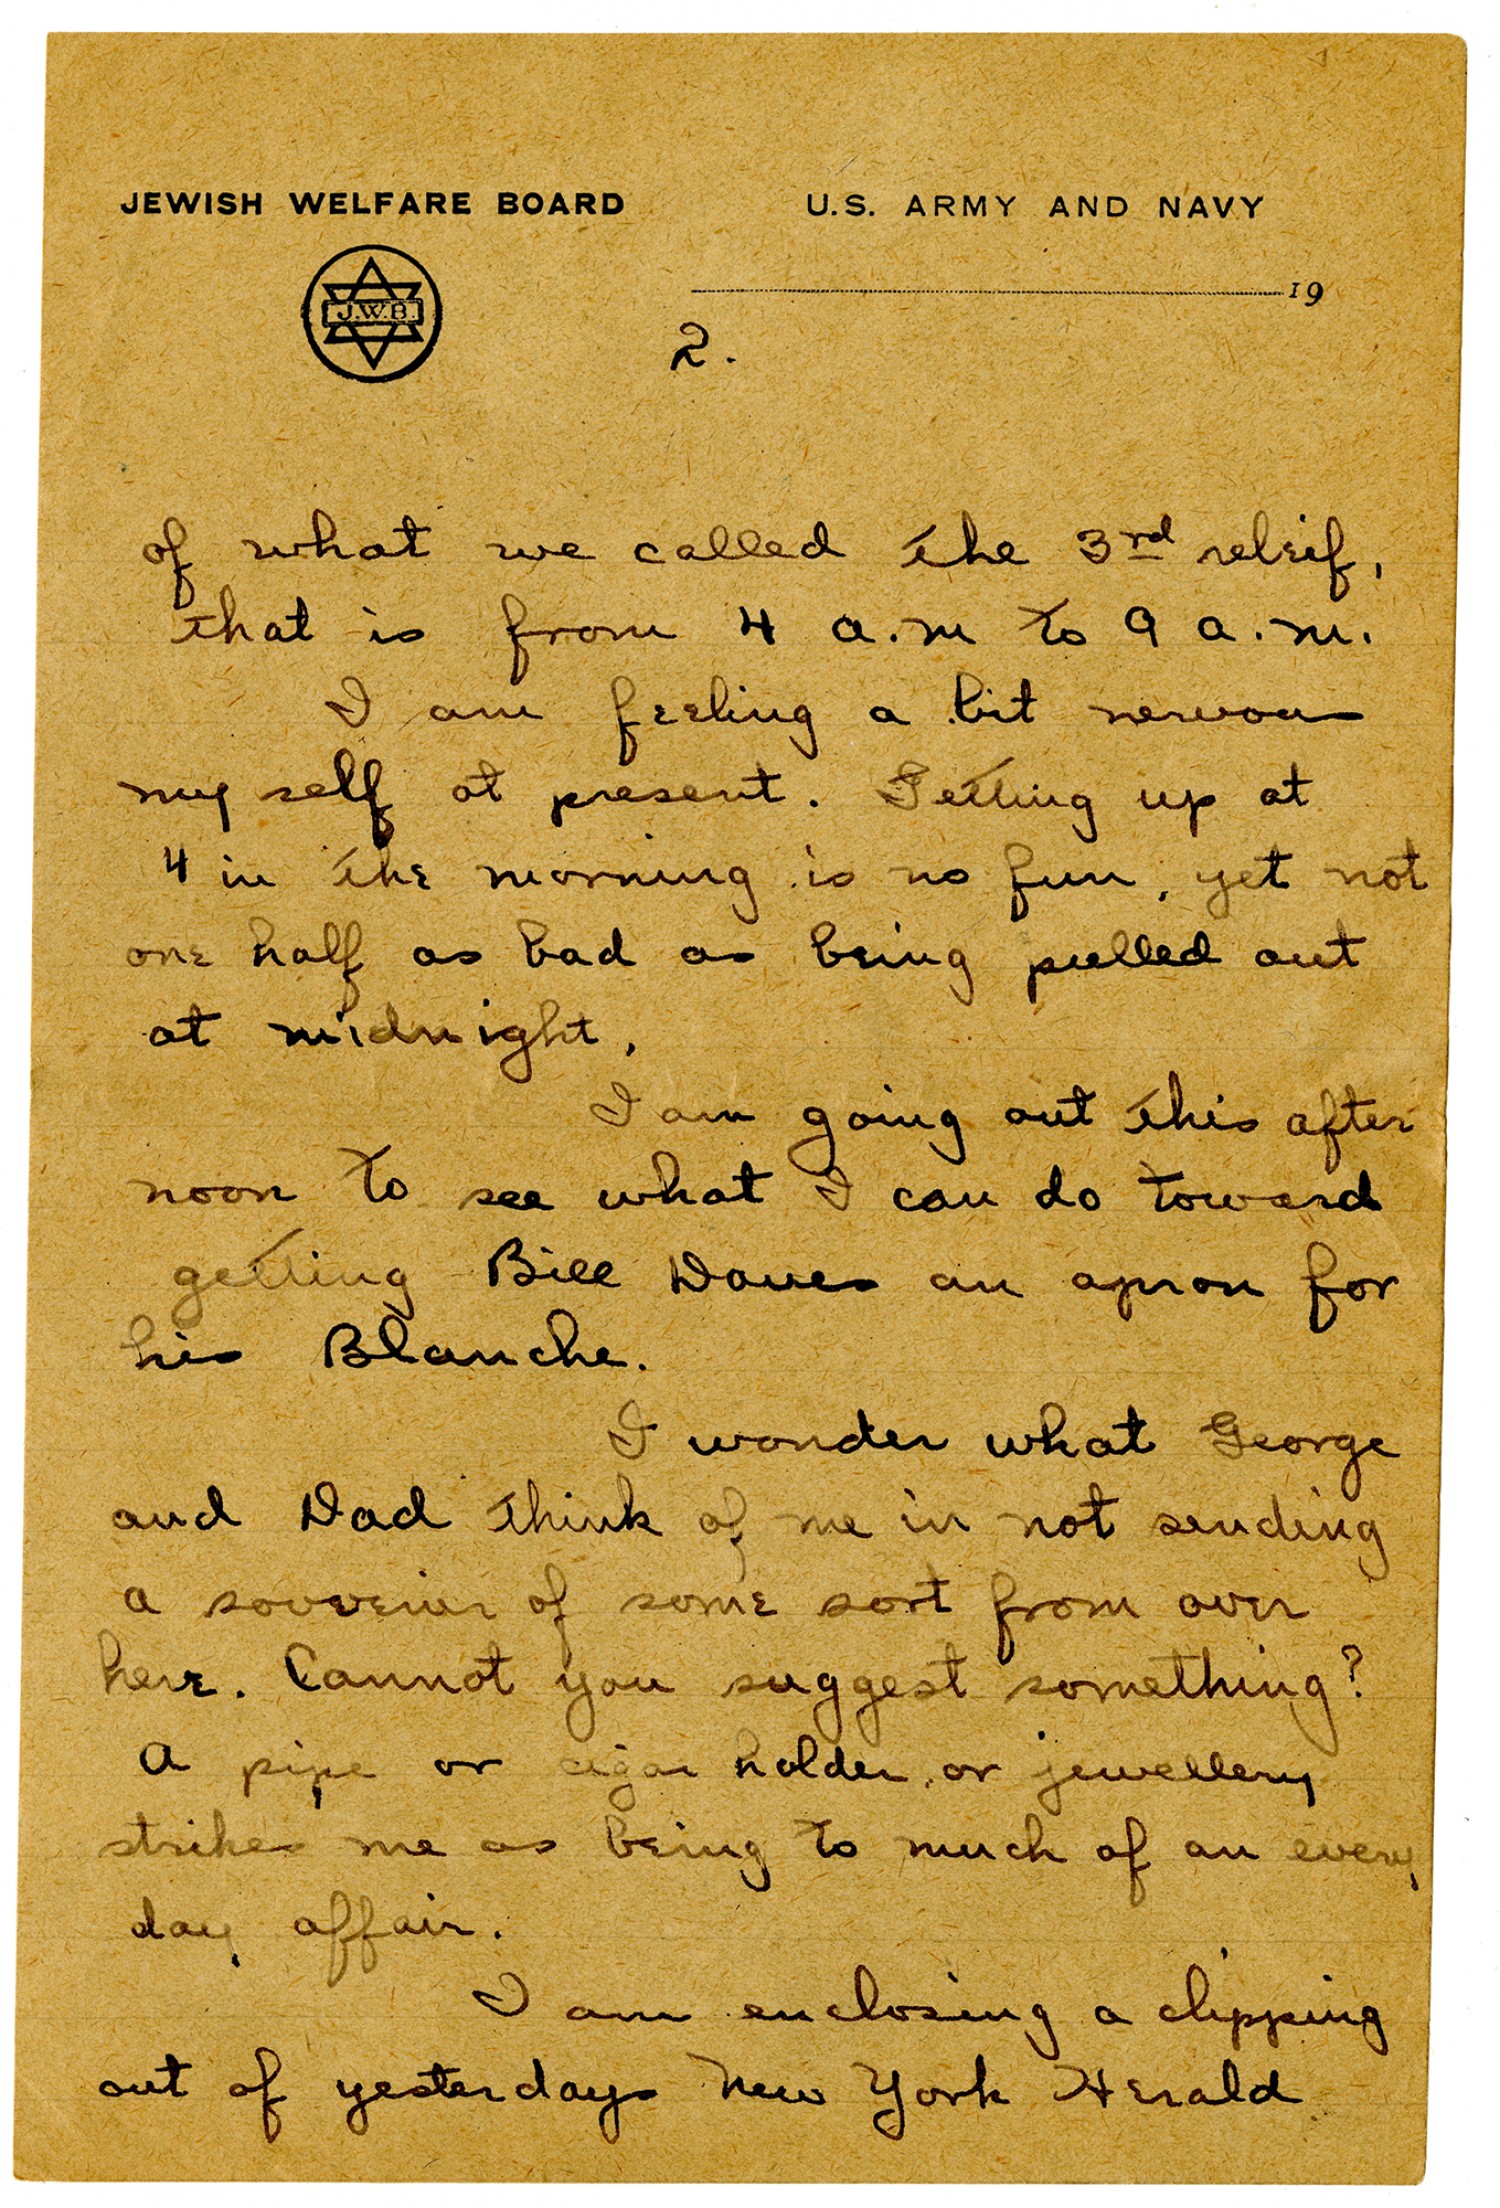 JEWISH WELFARE BOARD
U.S. ARMY AND NAVY
J.W.B.
19
2.
of what we called the 3rd releif,
that is from 4 a.m to 9 a.m.
I am feeling a bit nervous
my self at present. Getting up at
4 in the morning is no fun, yet not
one half as bad as being pulled out
at midnight.
I am going out this after
noon to see what I can do toward
getting Bill Daves an apron for
his Blanche.
I wonder what George
and Dad think of me in not sending
a souvenir of some sort from over
here. Cannot you suggest something?
A pipe or cigar holder, or jewellery
strikes me as being to much of an every
day affair.
I am enclosing a clipping
out of yesterdays New York Herald